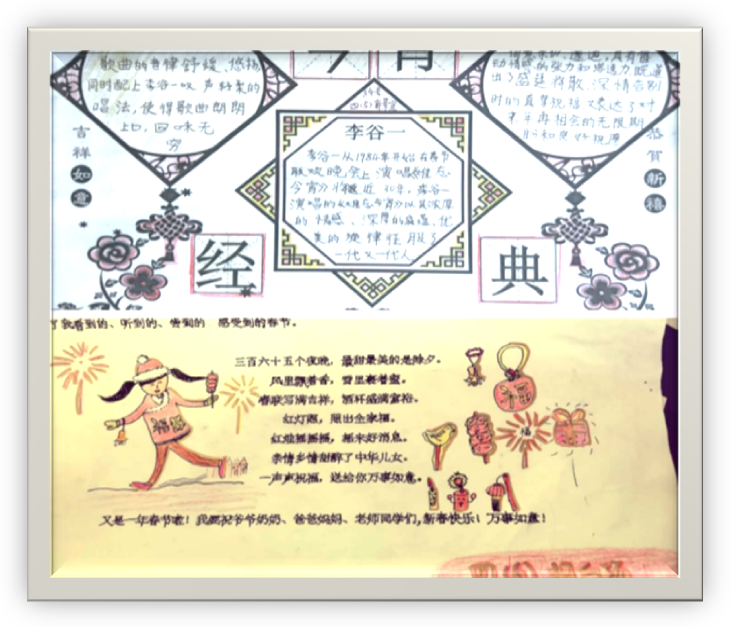 今宵
歌曲的旋律舒缓、悠扬
同时配上李谷一 声轻柔的
唱法,使得歌曲朗朗
上口,回味无
穷
深情告别
时的真挚祝福 表达了对
再相会的无限期
盼和美好祝愿
吉祥如意
恭贺新禧
李谷一
李谷一从1984年开始在春节
联欢晚会上演唱《难忘
今宵》将近30年。李谷一
演唱的《难忘今宵》以其浓厚
的情感、深厚的底蕴、优
美的旋律征服了
一代又一代人
经典
了我看到的、听到的、尝到的 感受到的春节。
三百六十五个夜晚,最甜最美的是除夕。
风里飘着香,雪里裹着蜜。
春联写满吉祥,酒杯盛满富裕。
红灯照,照出全家福。
红烛摇摇摇,摇来好消息。
亲情乡情甜醉了中华儿女。
一声声祝福,送给你万事如意。
福
福
又是一年春节啦!我要祝爷爷奶奶、爸爸妈妈、老师同学们,新春快乐!万事如意!